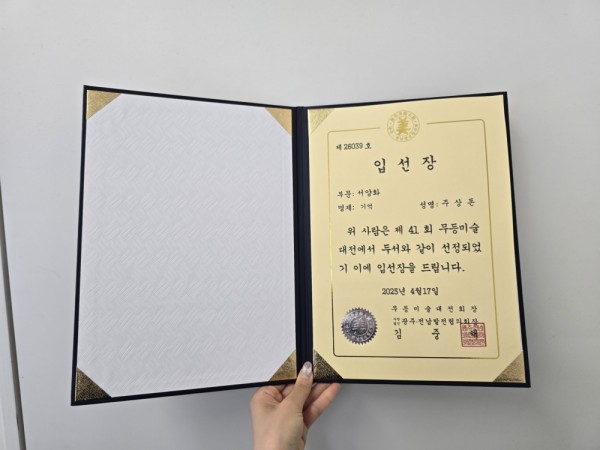 제 26039 호
입선장
부문: 서양화
명제: 기억 성명: 주상돈
위 사람은 제 41 회 무등미술
대전에서 두서와 같이 선정되었
기 이에 입선장을 드립니다.
2025년 4월17일
무등미술대전회장
광주·전남발전협의회장
김 중